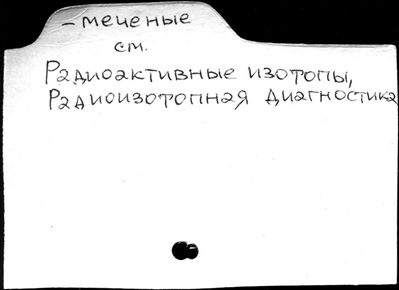 - меченые
см.
Радиоактивные изотопы,
Радиоизотопная диагностика